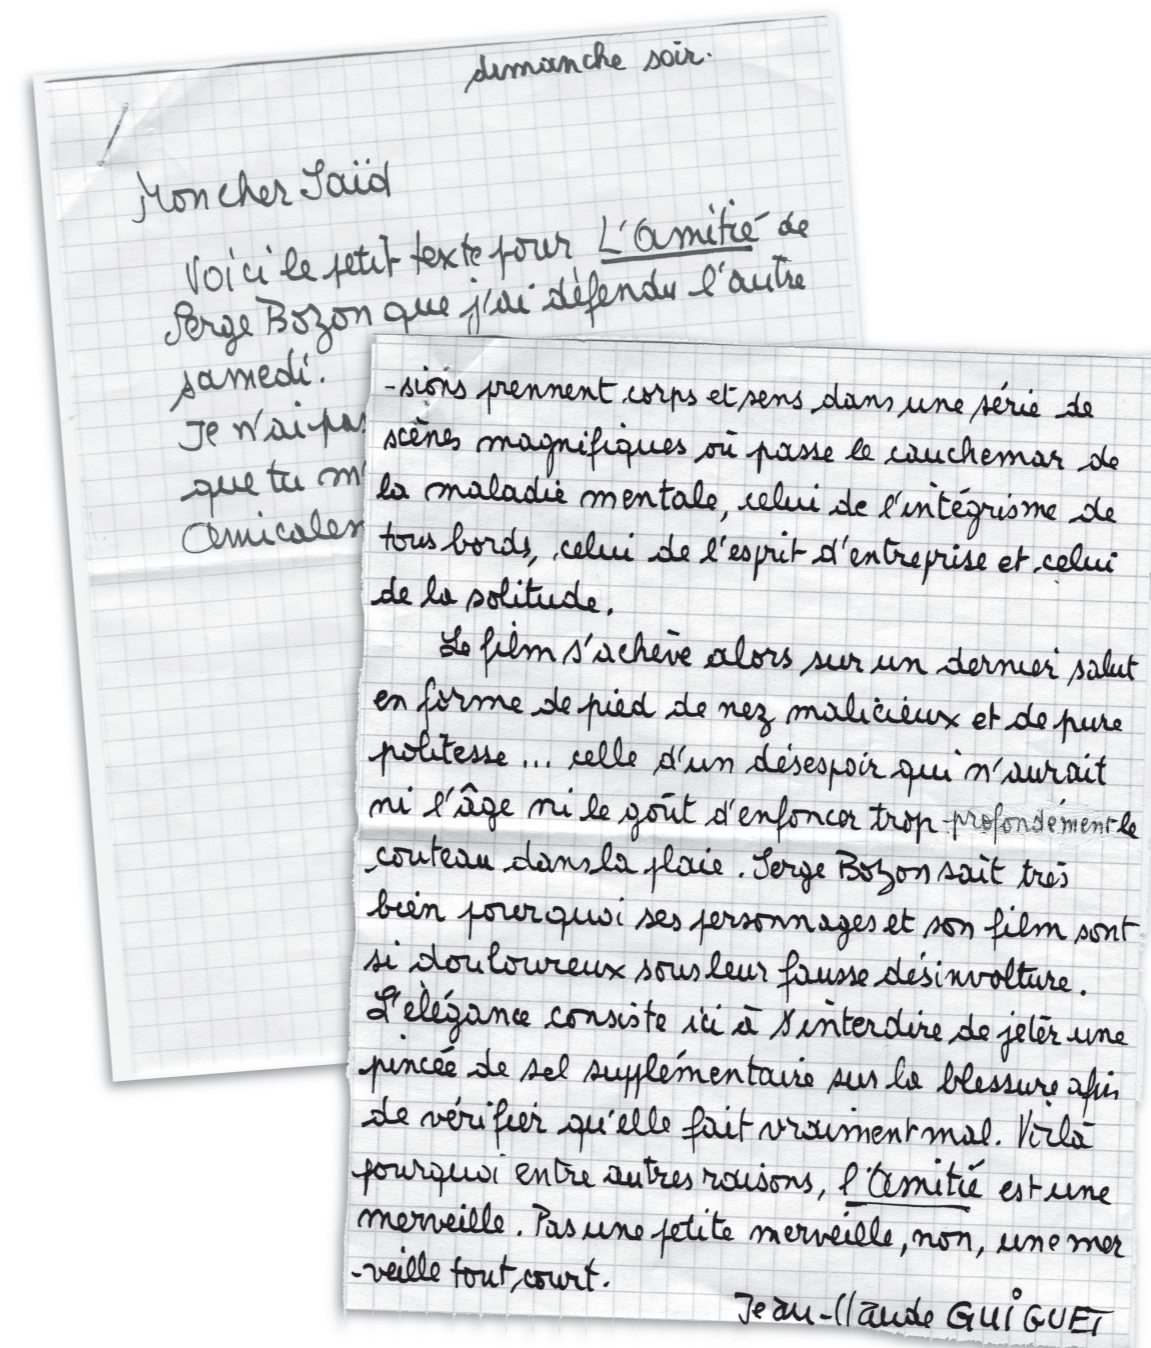 dimanche soir.
Mon cher Saïd
Voici le petit texte pour L'Amitié de
Serge Bozon que j'ai défendu l'autre
samedi.
Je n'ai pas
que tu m'
Amicalem
-sions prennent corps et sens dans une série de
scènes magnifiques où passe le cauchemar de
la maladie mentale, celui de l'intégrisme de
tous bords, celui de l'esprit d'entreprise et celui
de la solitude.
Le film s'achève alors sur un dernier salut
en forme de pied de nez malicieux et de pure
politesse... celle d'un désespoir qui n'aurait
ni l'âge ni le goût d'enfoncer trop profondément le
couteau dans la plaie. Serge Bozon sait très
bien pourquoi ses personnages et son film sont
si douloureux sous leur fausse désinvolture.
L'élégance consiste ici à s'interdire de jeter une
pincée de sel supplémentaire sur la blessure afin
de vérifier qu'elle fait vraiment mal. Voilà
pourquoi entre autres raisons, l'Amitié est une
merveille. Pas une petite merveille, non, une mer
-veille tout court.
Jean-Claude GUIGUET